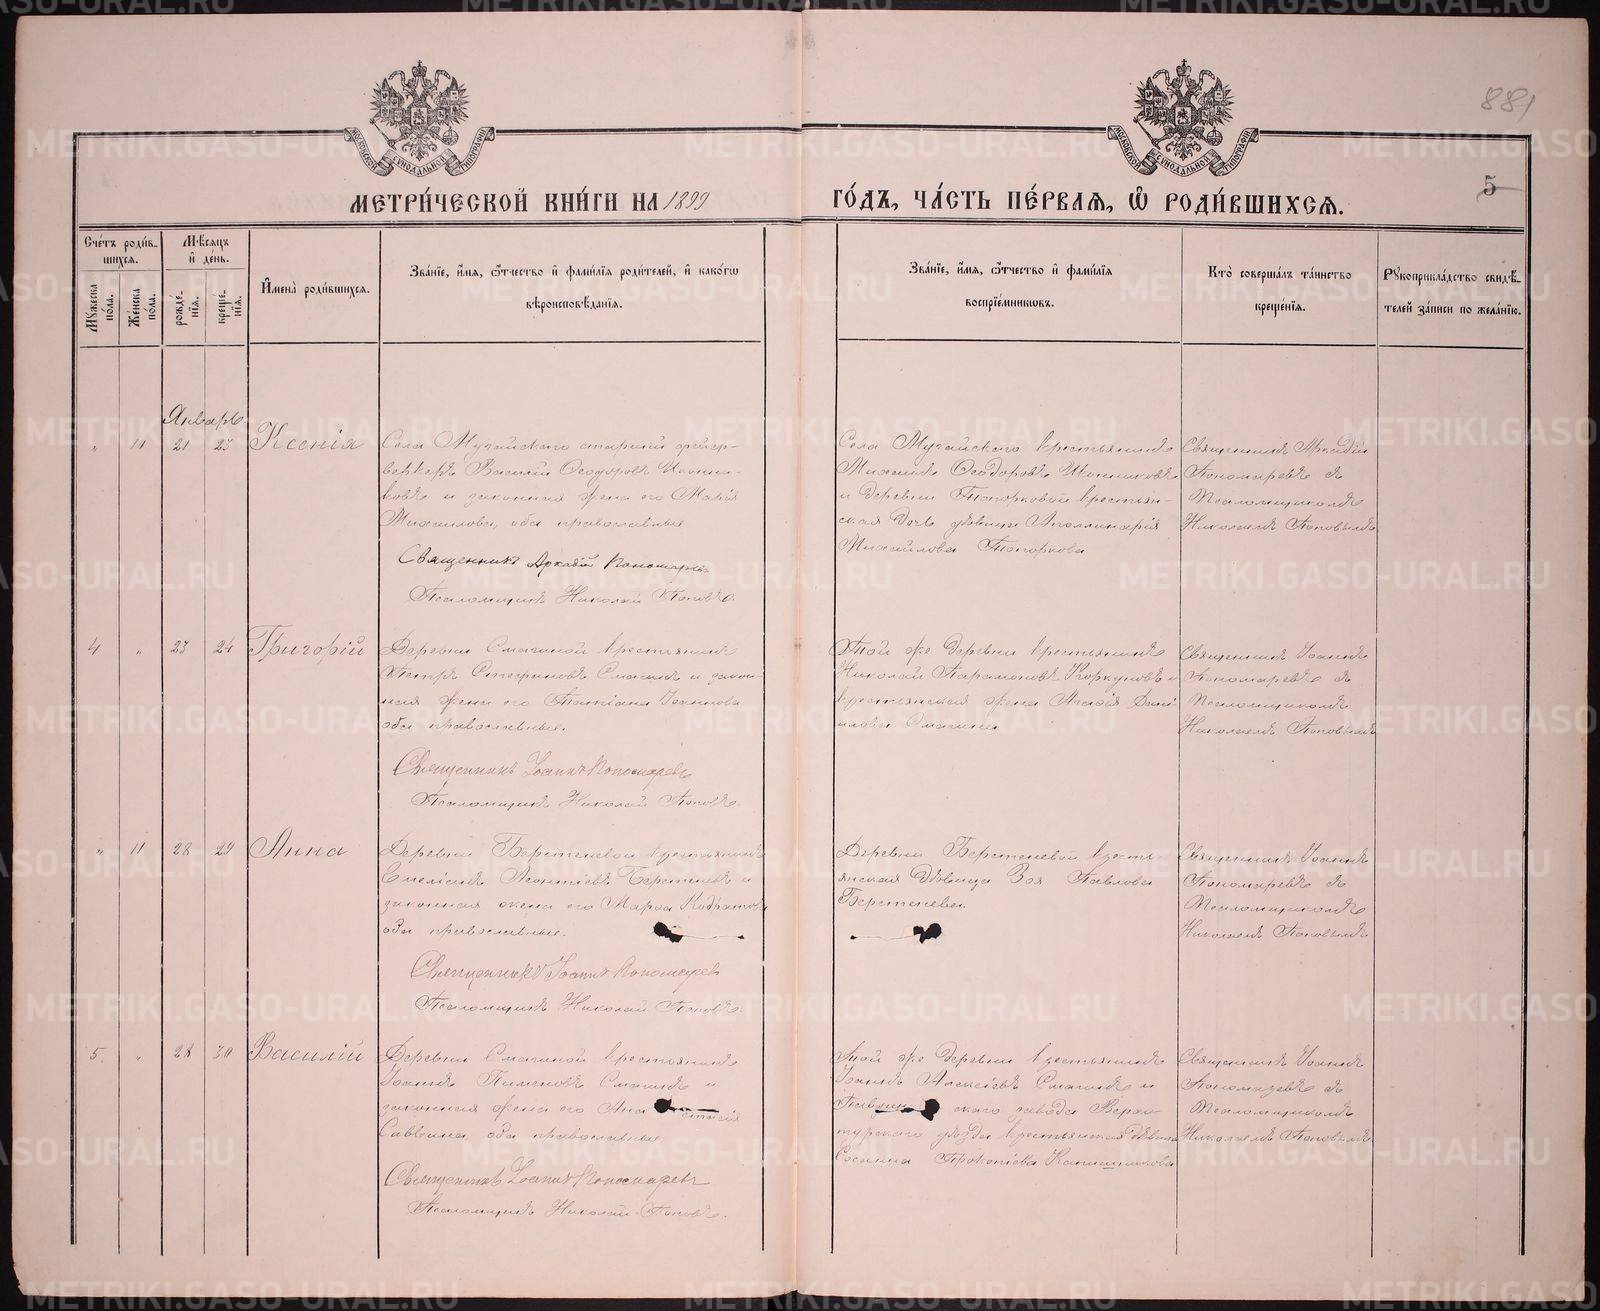 881
5
МЕТРИ́ЧЕСКОЙ КНИ́ГИ НА 1899
ГО́ДЪ, ЧА́СТЬ ПЕ́РВАЯ, Ѡ҆ РОДИ́ВШИХСЯ.
Сче́тъ роди́в-
шихся.
Мꙋжеска
по́ла.
Же́нска
по́ла.
Мѣ́сяцъ
и҆ де́нь.
рожде-
нїя.
креще́-
нїя.
И҆мена̀ роди́вшихся.
Зва́нїе, и҆́мя, ѻ҆́тчество и҆ фами́лїя роди́телей, и҆ како́гѡ
вѣроисповѣ́данїя.
Зва́нїе, и҆́мя, ѻ҆́тчество и҆ фами́лїя
воспрїе́мниковъ.
Кто̀ соверша́лъ та́инство
креще́нїя.
Рꙋкоприкла́дство свидѣ́-
телей за́писи по жела́нїю.
Январь
" 11 21 23 Ксенія
Села Мугайскаго старшій фейер-
веркеръ Василій Ѳеодоровъ Иконни-
ковъ и законная жена его Марія
Михаилова, оба православные
Священникъ Аркадій Пономаревъ
Псаломщикъ Николай Поповъ.
Села Мугайскаго крестьянинъ
Михаилъ Ѳеодоровъ Иконниковъ
и деревни Топорковой крестьян-
ская дочь дѣвица Аполлинарія
Михайлова Топоркова
Священникъ Аркадій
Пономаревъ съ
Псаломщикомъ
Николаемъ Поповымъ
4 " 23 24 Григорій
Деревни Смагиной крестьянинъ
Петръ Стефановъ Смагинъ и закон-
ная жена его Татіана Іоаннова
оба православные.
Священникъ Іоаннъ Пономаревъ
Псаломщикъ Николай Поповъ.
Той же деревни крестьянинъ
Николай Парамоновъ Коркуновъ и
крестьянская жена Агаѳія Дани-
лова Смагина
Священникъ Іоаннъ
Пономаревъ съ
Псаломщикомъ
Николаемъ Поповымъ
" 11 28 29 Анна
Деревни Берстеневой крестьянинъ
Леонтіевъ Берстеневъ и
законная жена его Марѳа Кодратова
оба православные.
Священникъ Іоаннъ Пономаревъ
Псаломщикъ Николай Поповъ.
Деревни Берстеневой кресть-
янская дѣвица Зоя Павлова
Берстенева.
Священникъ Іоаннъ
Пономаревъ съ
Псаломщикомъ
Николаемъ Поповымъ
5. " 28 30 Василій
Деревни Смагиной крестьянинъ
Іоаннъ Пименовъ Смагинъ и
законная жена его Ана стасія
Саввина, оба православные
Священникъ Іоаннъ Пономаревъ
Псаломщикъ Николай Поповъ.
Той же деревни крестьянинъ
Іоаннъ Алексіевъ Смагинъ и
скаго завода Верхо-
турскаго уѣзда крестьянская дѣвица
Прокопіева
Священникъ Іоаннъ
Пономаревъ съ
Псаломщикомъ
Николаемъ Поповымъ
METRIKI.GASO-URAL.RU